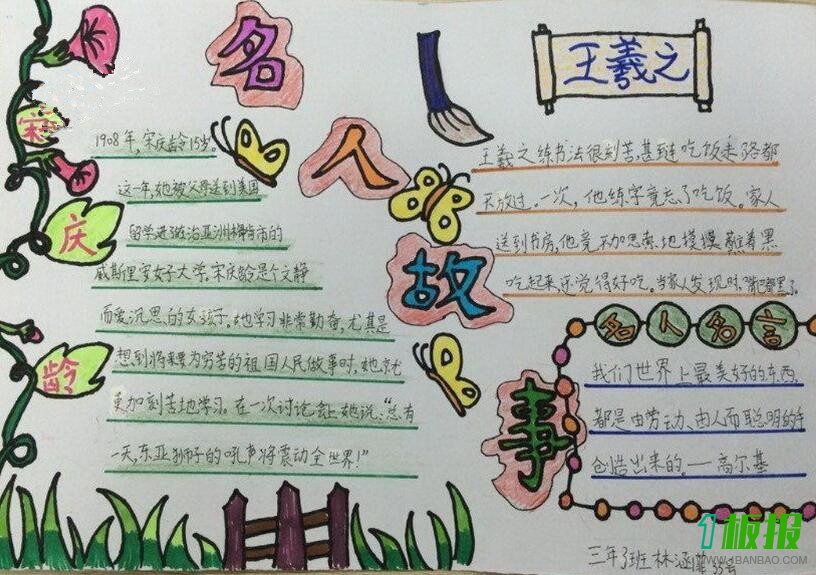 名人故事
宋庆龄
1908年,宋庆龄15岁。
这一年,她被父母送到美国
留学进了佐治亚洲梅肯市的
威斯里安女子大学。宋庆龄是个文静
而爱沉思的女孩子。她学习非常勤奋,尤其是
想到将来要为穷苦的祖国人民做事时,她就
更加刻苦地学习。在一次讨论会上她说:“总有
一天,东亚狮子的吼声将震动全世界!”
王羲之
王羲之练书法很刻苦,甚至连吃饭走路都
不放过.一次,他练字竟忘了吃饭。家人
送到书房,他竟不加思索地馍馍蘸着墨
吃起来,还觉得好吃。当家人发现时,嘴都黑了。
名人名言
我们世界上最美好的东西,
都是由劳动、由人而聪明的手
创造出来的。——高尔基
三年3班 林涵 33号
1板报
WWW.1BANBAO.COM